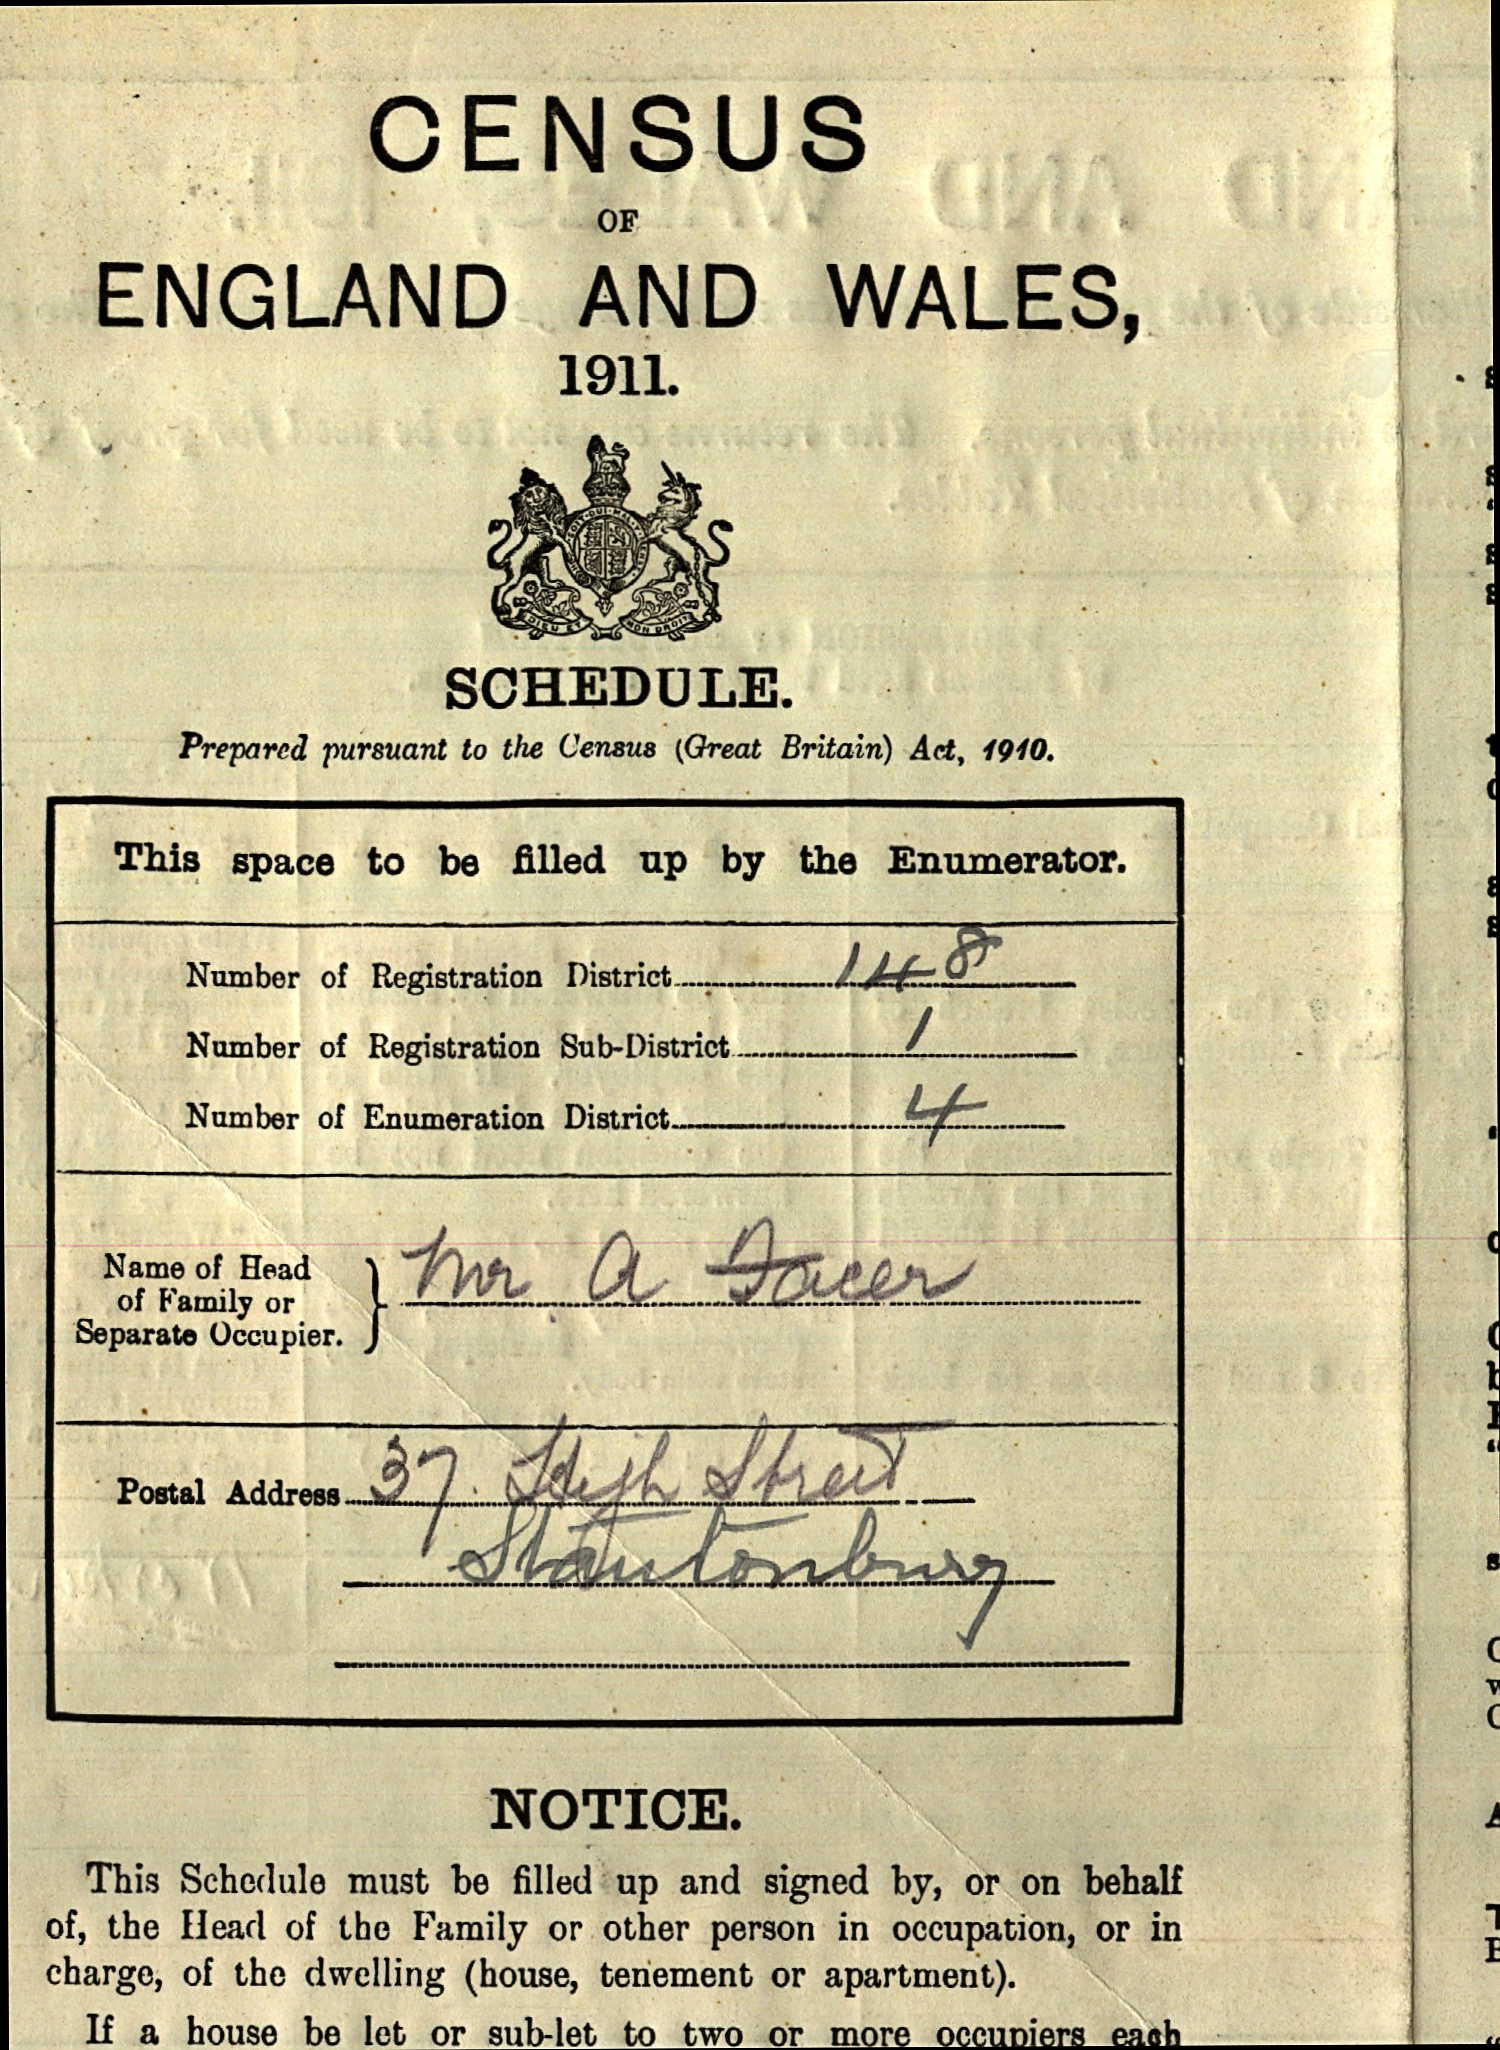 CENSUS
OF
ENGLAND AND WALES,
1911.
DIEU ET MON DROIT
SCHEDULE.
Prepared pursuant to the Census (Great Britain) Act, 1910.
This space to be filled up by the Enumerator.
Number of Registration District 148
Number of Registration Sub-District 1
Number of Enumeration District 4
Name of Head
of Family or
Separate Occupier.
Mr A Facer
Postal Address 37. High Street
Stantonbury
NOTICE.
This Schedule must be filled up and signed by, or on behalf
of, the Head of the Family or other person in occupation, or in
charge, of the dwelling (house, tenement or apartment).
If a house be let or sub-let to two or more occupiers each